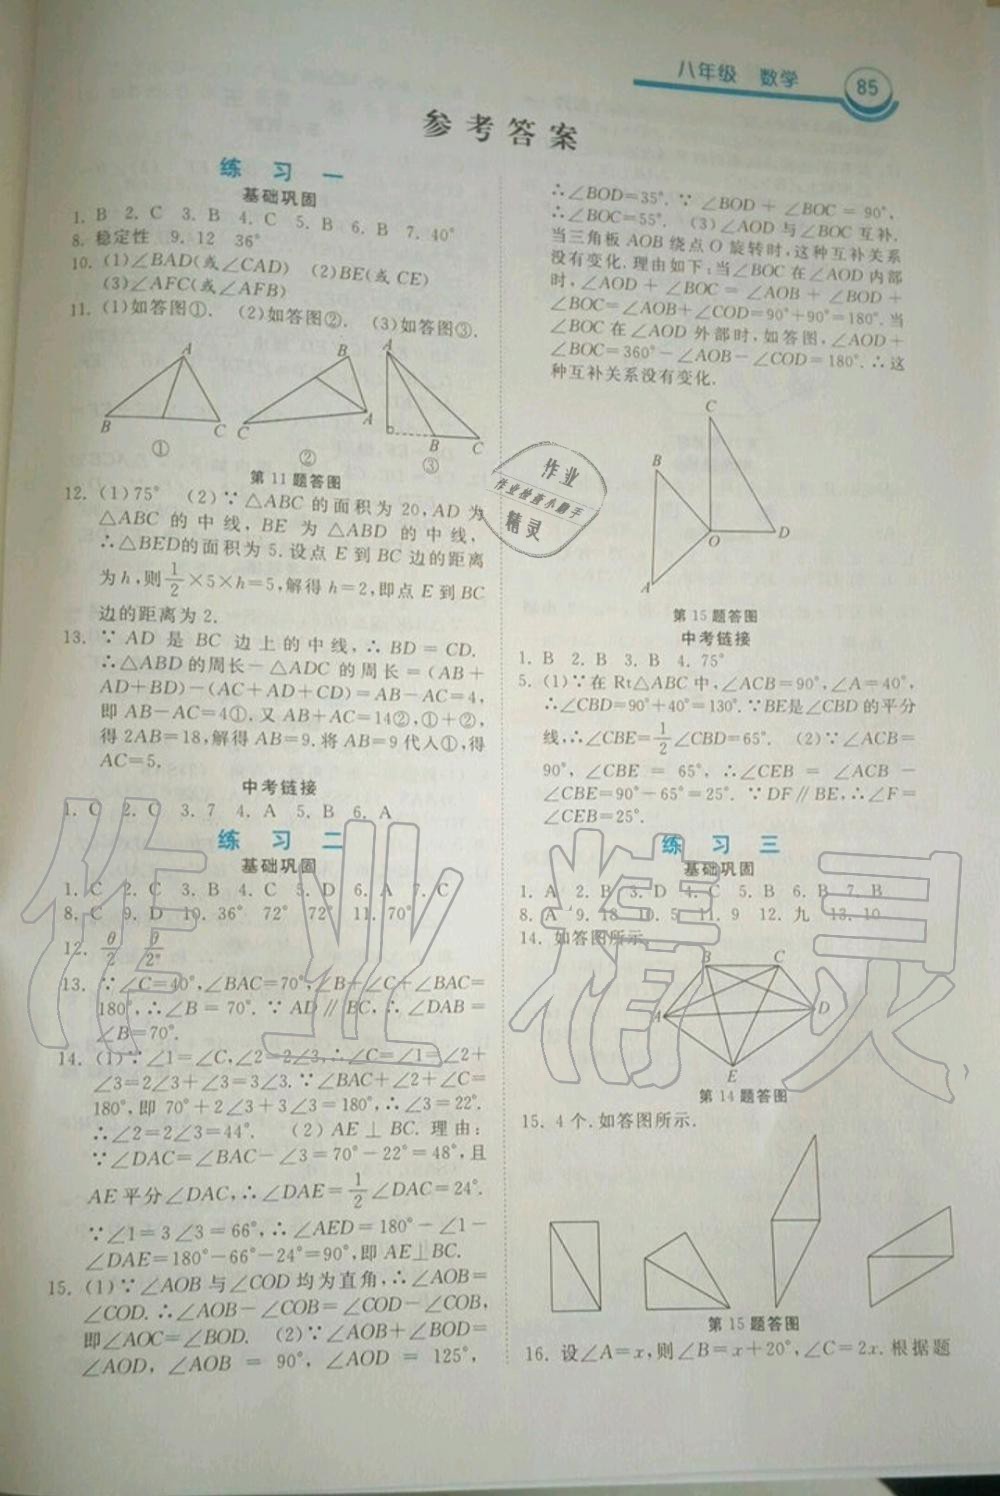 八年级 数学 85
参考答案
练 习 一
基础巩固
1. B 2. C 3. B 4. C 5. B 6. B 7. 40°
8. 稳定性 9. 12 36°
10. (1)∠BAD(或∠CAD) (2)BE(或 CE)
(3)∠AFC(或∠AFB)
11. (1)如答图①. (2)如答图②. (3)如答图③.
A
B
C
①
B
A
C
②
A
B
C
③
第 11 题答图
12. (1)75° (2)∵△ABC 的面积为 20,AD 为
△ABC 的中线,BE 为 △ABD 的中线,
∴△BED的面积为 5. 设点 E 到 BC 边的距离
为 h,则1/2×5×h=5,解得 h=2,即点 E 到 BC
边的距离为 2.
13. ∵ AD 是 BC 边上的中线,∴ BD = CD.
∴△ABD 的周长－△ADC 的周长=(AB+
AD+BD)-(AC+AD+CD)=AB-AC=4,
即 AB-AC=4①. 又 AB+AC=14②,①+②,
得 2AB=18,解得 AB=9. 将 AB=9 代入①,得
AC=5.
中考链接
1. C 2. C 3. 7 4. A 5. B 6. A
练 习 二
基础巩固
1. C 2. C 3. B 4. C 5. D 6. A 7. C
8. C 9. D 10. 36° 72° 72° 11. 70°
12. θ/2 θ/2ⁿ
13. ∵∠C=40°,∠BAC=70°,∠B+∠C+∠BAC=
180°,∴∠B = 70°. ∵ AD∥BC,∴∠DAB =
∠B=70°.
14. (1)∵∠1=∠C,∠2=2∠3,∴∠C=∠1=∠2+
∠3=2∠3+∠3=3∠3. ∵∠BAC+∠2+∠C=
180°,即 70°+2∠3+3∠3=180°,∴∠3=22°.
∴∠2=2∠3=44°. (2) AE⊥BC. 理由:
∵∠DAC=∠BAC-∠3=70°-22°=48°,且
AE 平分∠DAC,∴∠DAE=1/2∠DAC=24°.
∵∠1=3∠3=66°,∴∠AED=180°-∠1-
∠DAE=180°-66°-24°=90°,即 AE⊥BC.
15. (1)∵∠AOB 与∠COD 均为直角,∴∠AOB=
∠COD. ∴∠AOB-∠COB=∠COD-∠COB,
即∠AOC=∠BOD. (2)∵∠AOB+∠BOD=
∠AOD, ∠AOB = 90°, ∠AOD = 125°,
∴∠BOD=35°. ∵ ∠BOD + ∠BOC = 90°,
∴∠BOC=55°. (3)∠AOD 与∠BOC 互补.
当三角板 AOB 绕点 O 旋转时,这种互补关系
没有变化. 理由如下:当∠BOC 在∠AOD 内部
时, ∠AOD + ∠BOC = ∠AOB + ∠BOD +
∠BOC=∠AOB+∠COD=90°+90°=180°. 当
∠BOC 在∠AOD 外部时,如答图,∠AOD+
∠BOC=360°-∠AOB-∠COD=180°. ∴这
种互补关系没有变化.
C
B
O
D
A
第 15 题答图
作业
作业检查小助手
精灵
中考链接
1. B 2. B 3. B 4. 75°
5. (1)∵在 Rt△ABC 中,∠ACB=90°,∠A=40°,
∴∠CBD=90°+40°=130°. ∵BE是∠CBD 的平分
线,∴∠CBE=1/2∠CBD=65°. (2)∵∠ACB=
90°, ∠CBE = 65°, ∴∠CEB = ∠ACB -
∠CBE=90°-65°=25°. ∵DF∥BE,∴∠F=
∠CEB=25°.
练 习 三
基础巩固
1. A 2. B 3. D 4. C 5. B 6. B 7. B
8. A 9. 18 10. 5 11. 9 12. 九 13. 10
14. 如答图所示.
B
C
A
D
E
第 14 题答图
15. 4 个. 如答图所示.
第 15 题答图
16. 设∠A=x,则∠B=x+20°,∠C=2x. 根据题
作业精灵